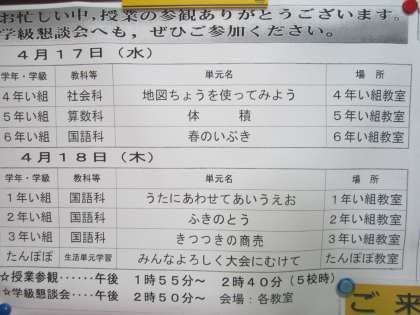 お忙しい中,授業の参観ありがとうございます。
学級懇談会へも,ぜひご参加ください。
4月17日(水)
学年・学級 教科等 単元名 場所
4年い組 社会科 地図ちょうを使ってみよう 4年い組教室
5年い組 算数科 体積 5年い組教室
6年い組 国語科 春のいぶき 6年い組教室
4月18日(木)
学年・学級 教科等 単元名 場所
1年い組 国語科 うたにあわせてあいうえお 1年い組教室
2年い組 国語科 ふきのとう 2年い組教室
3年い組 国語科 きつつきの商売 3年い組教室
たんぽぽ 生活単元学習 みんなよろしく大会にむけて たんぽぽ教室
☆授業参観……午後 1時55分~ 2時40分(5校時)
☆学級懇談会…午後 2時50分~ 会場:各教室
ご来